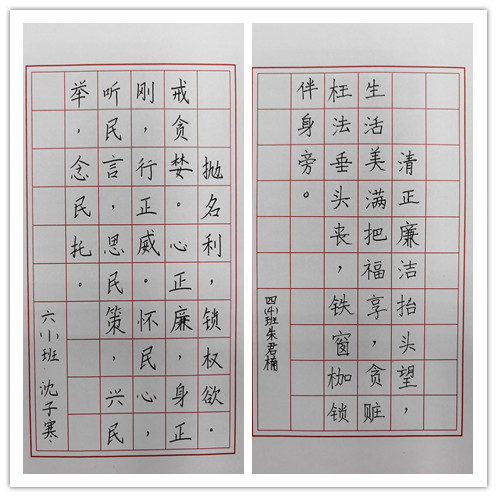 抛名利，锁权欲。
戒贪婪。心正，廉身正
刚，行正威。怀民心，
听民言，思民策，兴民
举，念民托。
六(1)班 沈子寒
清正廉洁抬头望，
生活美满把福享，贪赃
枉法垂头丧，铁窗枷锁
伴身旁。
四(4)班朱君楠